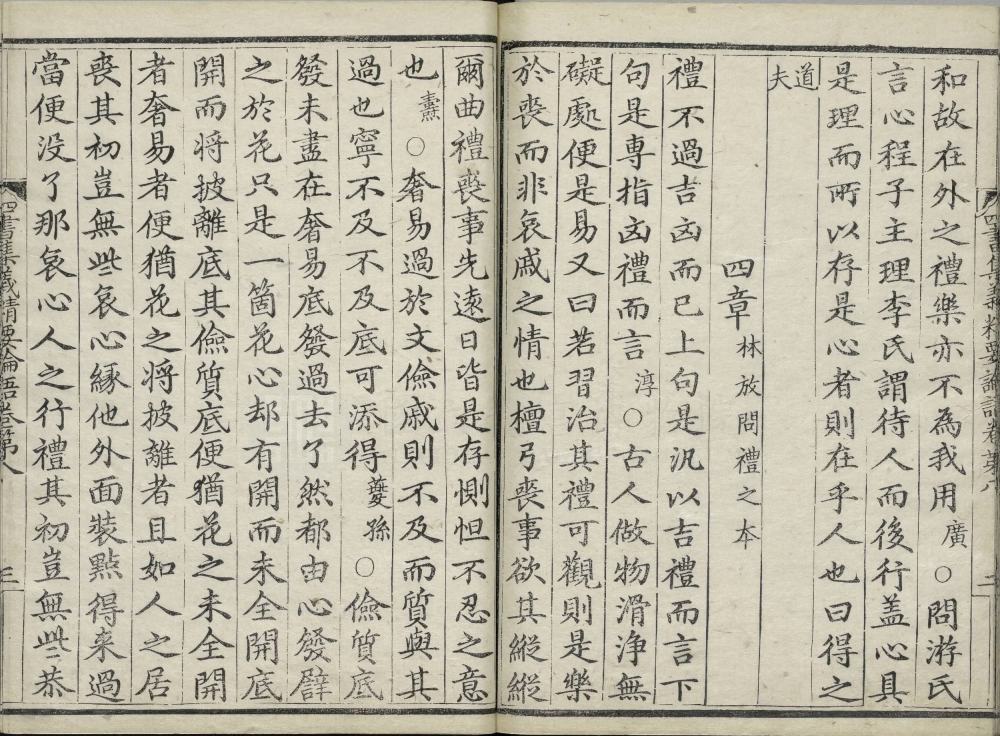 和故在外之禮樂亦不為我用廣○問游氏
言心程子主理李氏謂待人而後行盖心具
是理而所以存是心者則在乎人也曰得之
道夫
四章林放問禮之本
禮不過吉凶而已上句是汎以吉禮而言下
句是專指凶禮而言淳○古人做物滑浄無
礙處便是易又曰若習治其禮可觀則是樂
於喪而非哀戚之情也檀弓喪事欲其縱縱
爾曲禮喪事先遠日皆是存惻怛不忍之意
也燾○奢易過於文儉戚則不及而質與其
過也寧不及不及底可添得夔孫○儉質底
發未盡在奢易底發過去了然都由心發譬
之於花只是一箇花心却有開而未全開底
開而將披離底其儉質底便猶花之未全開
者奢易者便猶花之將披離者且如人之居
喪其初豈無些哀心緣他外面裝點得来過
當便没了那哀心人之行禮其初豈無些恭
四書集義精要論語卷第八
二
四書集義精要論語卷第八
三